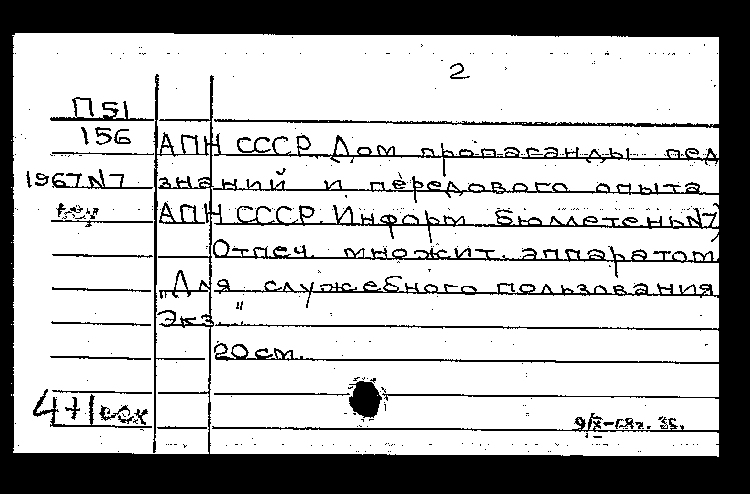 2
П51
156 АПН СССР Дом пропаганды пед
1967 N7 знаний и передового опыта
АПН СССР. Информ бюллетень N7)
Отпеч. множит. аппаратом
„Для служебного пользования
Экз. "
20 см.